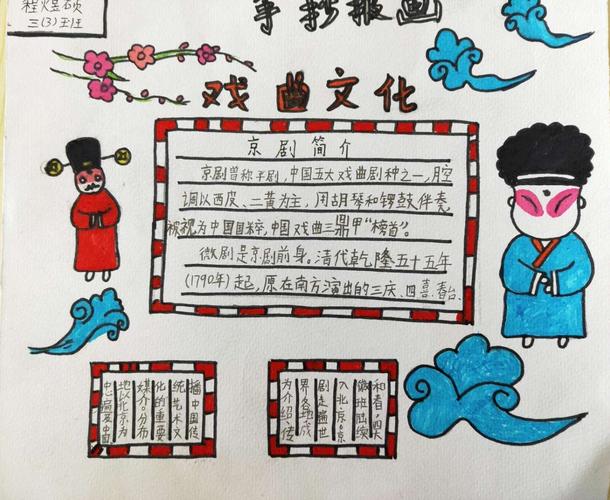 程煜硕
三(3)班
手抄报画
戏曲文化
京剧简介
京剧曾称平剧,中国五大戏曲剧种之一,腔
调以西皮、二黄为主,用胡琴和锣鼓伴奏,
被视为中国国粹,中国戏曲三鼎甲“榜首”。
徽剧是京剧前身。清代乾隆五十五年
(1790年)起,原在南方演出的三庆、四喜、春台、
和春,四大
徽班陆续
入北京。京
剧走遍世
界各地,成
为介绍、传
播中国传
统艺术文
化的重要
媒介。分布
地以北京为
中心,遍及中国